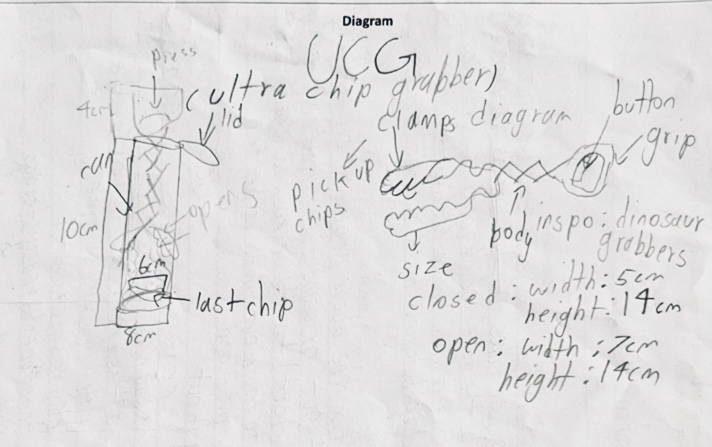 Diagram
UCG
(ultra chip grabber)
press
4cm
lid
can
10cm
opens
6cm
last chip
8cm
clamps diagram
pick up
chips
button
grip
body
inspo: dinosaur
grabbers
size
closed: width: 5cm
height: 14cm
open: width: 7cm
height: 14cm